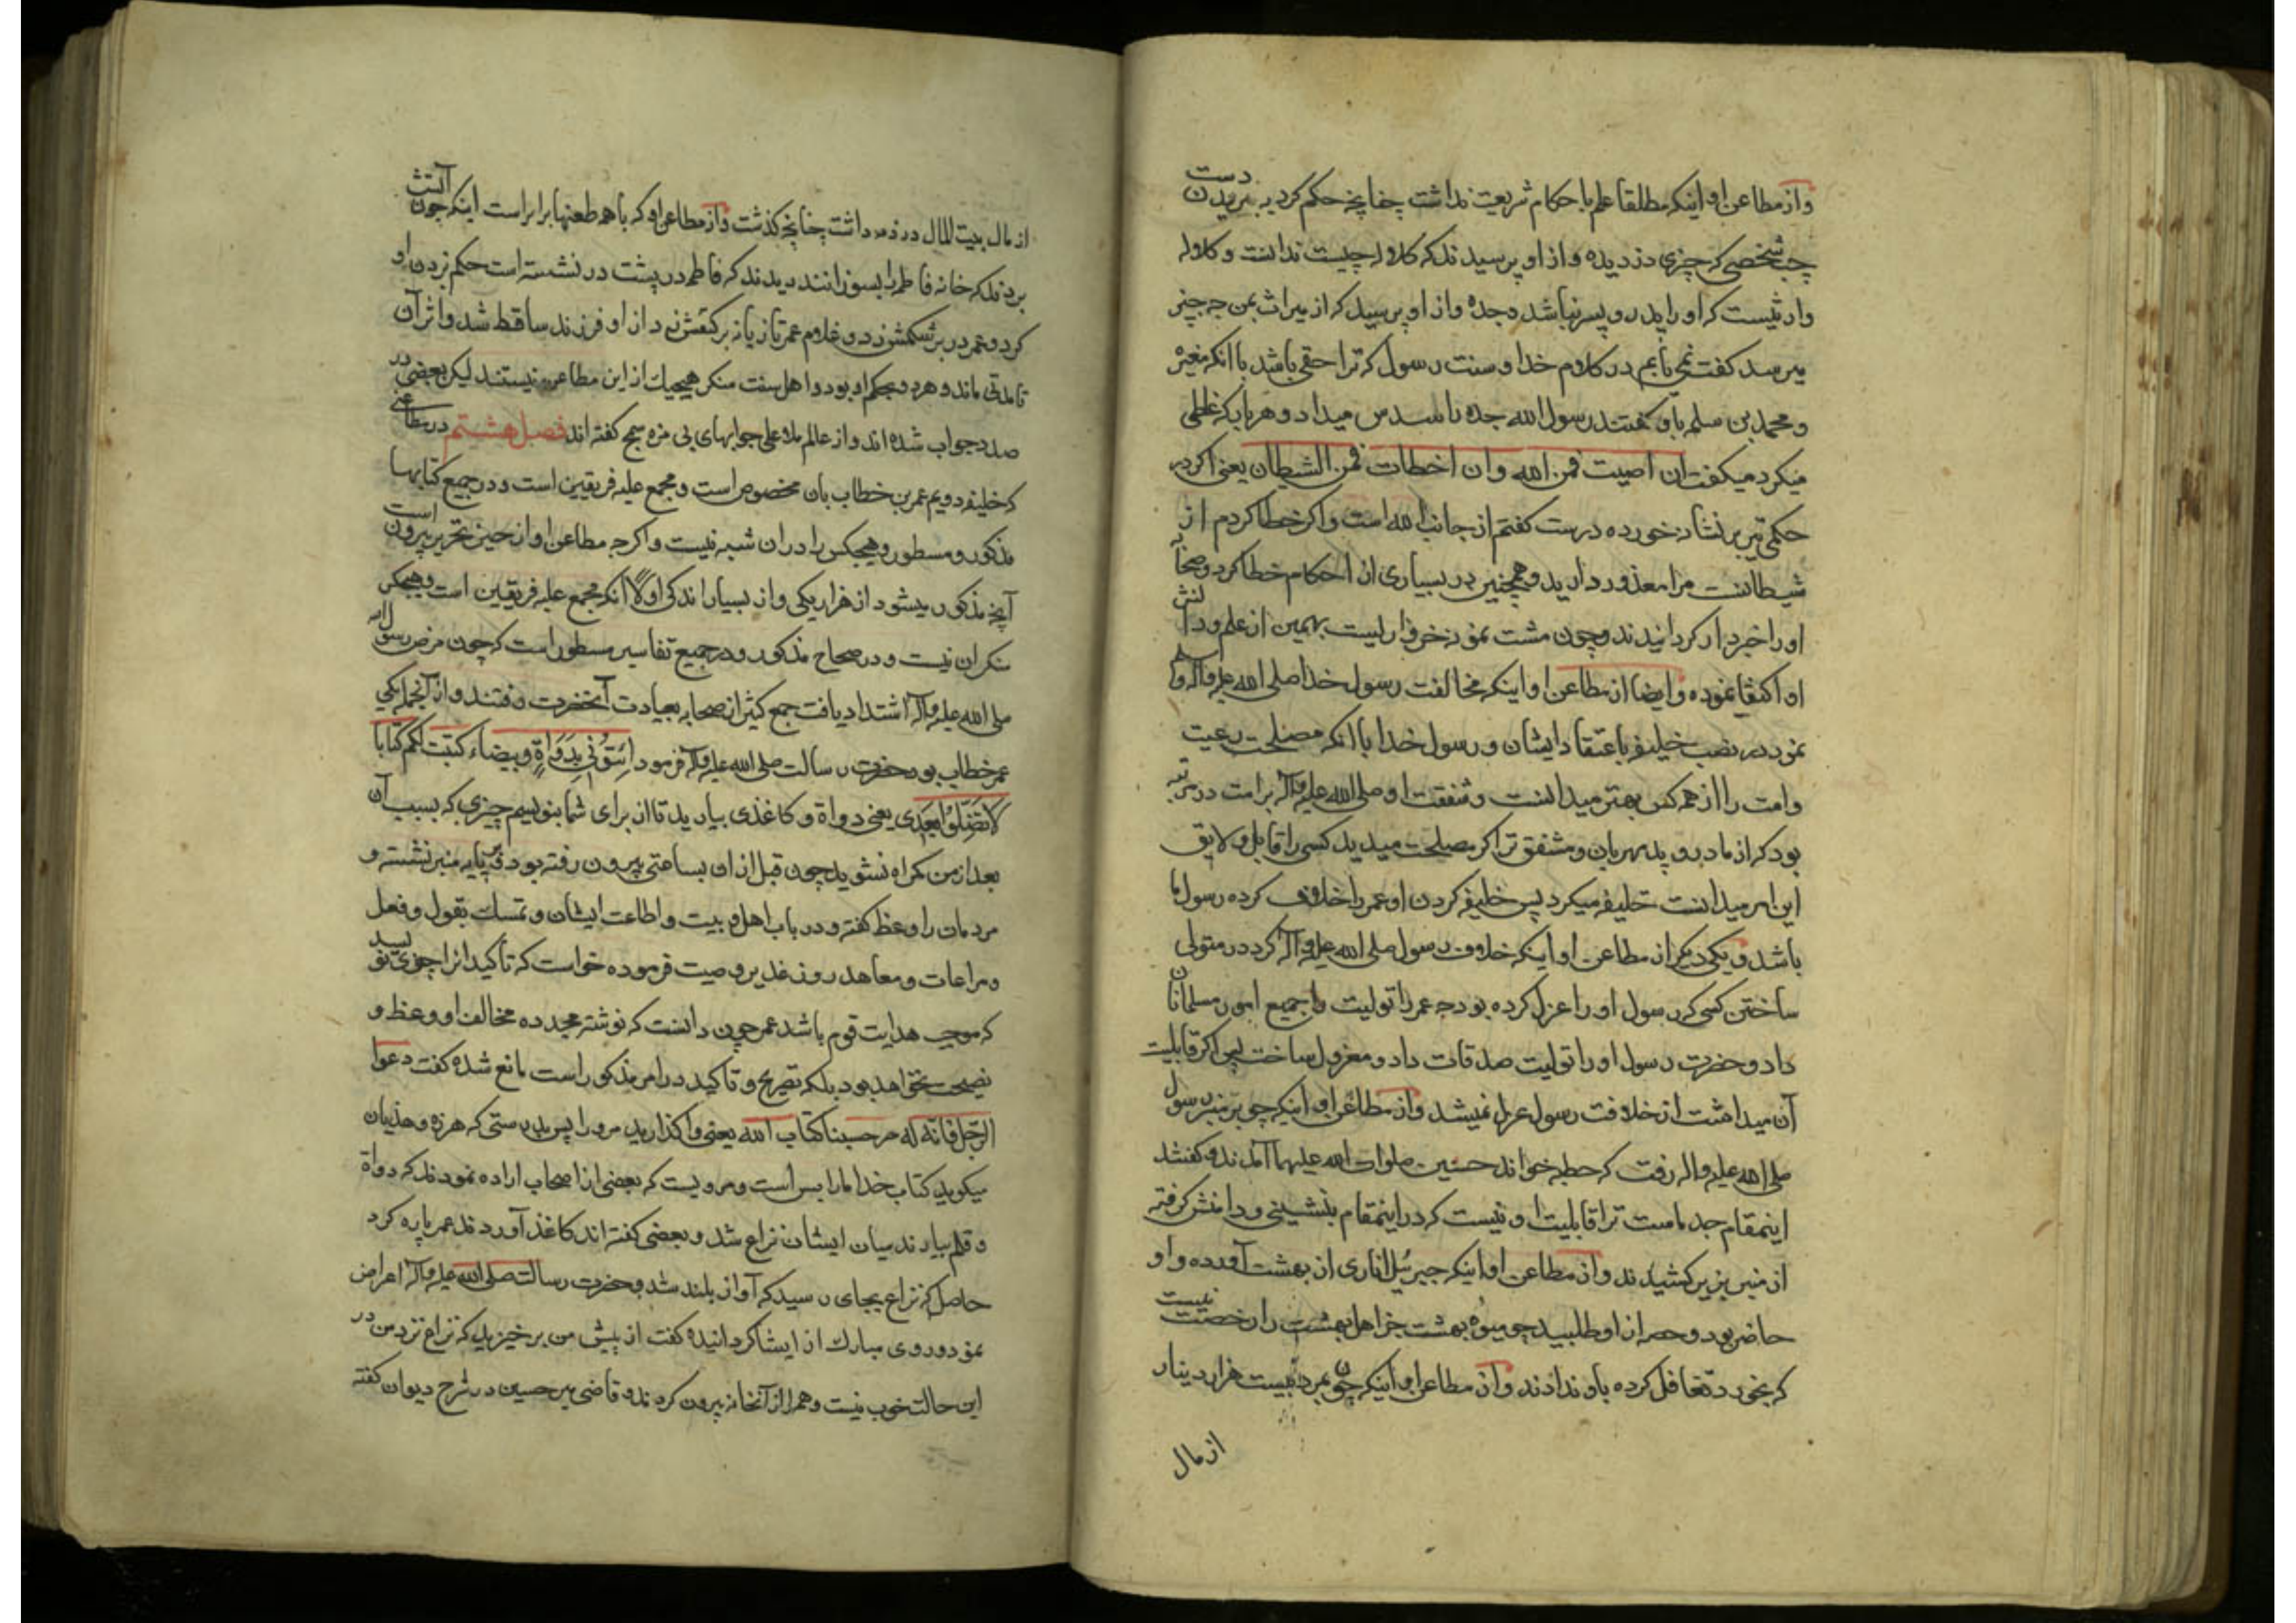 واز مطاعن او اینکه مطلقا علم باحکام شریعت نداشت چنانچه حکم کرد به بریدن دست
چپ شخصی که چیزی دزدیده و از او پرسیدند که کلاله چیست ندانست و کلاله
وارثیست که او را پدر و پسر نباشد و جده و از او پرسید که از میراث بمن چه چیز
میرسد کفت نمی یابم در کلام خدا و سنت رسول که ترا حقی باشد با انکه مغیره
و محمد بن سلمه باو کفتند رسول الله جده را سدس میداد و هر بار که غلطی
میکرد میکفت ان اصبت فمن الله وان اخطات فمن الشیطان یعنی اکر در
حکمی تیر بر نشانه خورده درست کفتم از جانب الله است و اکر خطا کردم از
شیطانست مرا معذور دارید و همچنین در بسیاری از احکام خطا کرد و صحابه
او را خبردار کردانیدند و چون مشت نمونه خروار است بهمین از علم و دانش
او اکتفا نموده وایضا از مطاعن او اینکه مخالفت رسول خدا صلی الله علیه واله وسلم
نمود در نصب خلیفه باعتقاد ایشان و رسول خدا با انکه مصلحت رعیت
وامت را از همه کس بهتر میدانست و شفقت او صلی الله علیه واله بر امت در مرتبه
بود که از مادر و پدر مهربان و مشفق تر اکر مصلحت میدید کسی را قابل و لایق
این امر میدانست خلیفه میکرد پس خلیفه کردن او عمر را خلاف کرده رسول ما
باشد و یکی دیکر از مطاعن او اینکه خلاف رسول صلی الله علیه واله کرد در متولی
ساختن کسی که رسول او را عزل کرده بود چه عمر را تولیت جمیع امور مسلمانان
داد و حضرت رسول او را تولیت صدقات داد و معزول ساخت پس اکر قابلیت
آن میداشت از خلافت رسول عزل نمیشد واز مطاعن او اینکه چو بر منبر رسول
صلی الله علیه واله رفت که خطبه خواند حسنین صلوات الله علیهما آمدند و کفتند
اینمقام جد ماست ترا قابلیت او نیست که در اینمقام بنشینی و دامنش کرفته
از منبر بزیر کشیدند واز مطاعن او اینکه جبرئیل اناری از بهشت آورده و او
حاضر بود و از او طلبید چو میوه بهشت جز اهل بهشت را رخصت نیست
که بخورد تغافل کرده باو ندادند واز مطاعن او اینکه چون بمرد بیست هزار دینار
از مال
از مال بیت المال در ذمه داشت چنانچه کذشت واز مطاعن او که با همه طعنها برابر است اینکه چون آتش
بردند که خانه فاطمه را بسوزانند دیدند که فاطمه در پشت در نشسته است حکم بزدن او
کرد و عمر در بر شکمش زد و غلام عمر تازیانه بر کتفش زد از او فرزند ساقط شد و اثر آن
تا مدتی ماند و هر دو بحکم او بود و اهل سنت منکر هیچیک از این مطاعن نیستند لیکن بعضی در
صدد جواب شده اند و از عالم ملا علی جوابهای بی مزه سمج کفته اند فصل هشتم در مطاعنی
که خلیفه دویم عمر بن خطاب بان مخصوص است و مجمع علیه فریقین است و در جمیع کتابها
مذکور و مسطور و هیچکس را در ان شبهه نیست و اکرچه مطاعن او از حیز تحریر بیرون است
آنچه مذکور میشود از هزار یکی و از بسیار اندکی اولا انکه مجمع علیه فریقین است و هیچکس
منکر ان نیست و در صحاح مذکور و در جمیع تفاسیر مسطور است که چون مرض رسول الله
صلی الله علیه واله اشتداد یافت جمع کثیر از صحابه بعیادت آنحضرت رفتند و از آنجمله یکی
عمر خطاب بود حضرت رسالت صلی الله علیه واله فرمود ائتونی بدواة وبیضاء کتبت لکم کتابا
لا تضلوا بعدی یعنی دواة و کاغذی بیارید تا از برای شما بنویسم چیزی که بسبب آن
بعد از من کمراه نشوید چون قبل از ان بساعتی بیرون رفته بود و بر پایه منبر نشسته و
مردمان را وعظ کفته و در باب اهل بیت و اطاعت ایشان و تمسک بقول و فعل
و مراعات و معاهد روز غدیر وصیت فرموده خواست که تأکید انرا چیزی بنویسد
که موجب هدایت قوم باشد عمر چون دانست که نوشته مجدده مخالف او وعظ و
نصیحت نخواهد بود بلکه تصریح و تاکید در امر مذکور است مانع شده کفت دعوا
الرجل فانه لهجر حسبنا کتاب الله یعنی واکذارید مرد را بدرستی که هرزه و هذیان
میکوید کتاب خدا ما را بس است و مرویست که بعضی از اصحاب اراده نمودند که دواة
و قلم بیارند میان ایشان نزاع شد و بعضی کفته اند کاغذ آوردند عمر پاره کرد
حاصل که نزاع بجای رسید که آواز بلند شد و حضرت رسالت صلی الله علیه واله اعراض
نمود و روی مبارک از ایشان کردانیده کفت از پیش من برخیزید که نزاع نزد من در
این حالت خوب نیست و همه را از آنخانه بیرون کردند و قاضی میر حسین در شرح دیوان کفته